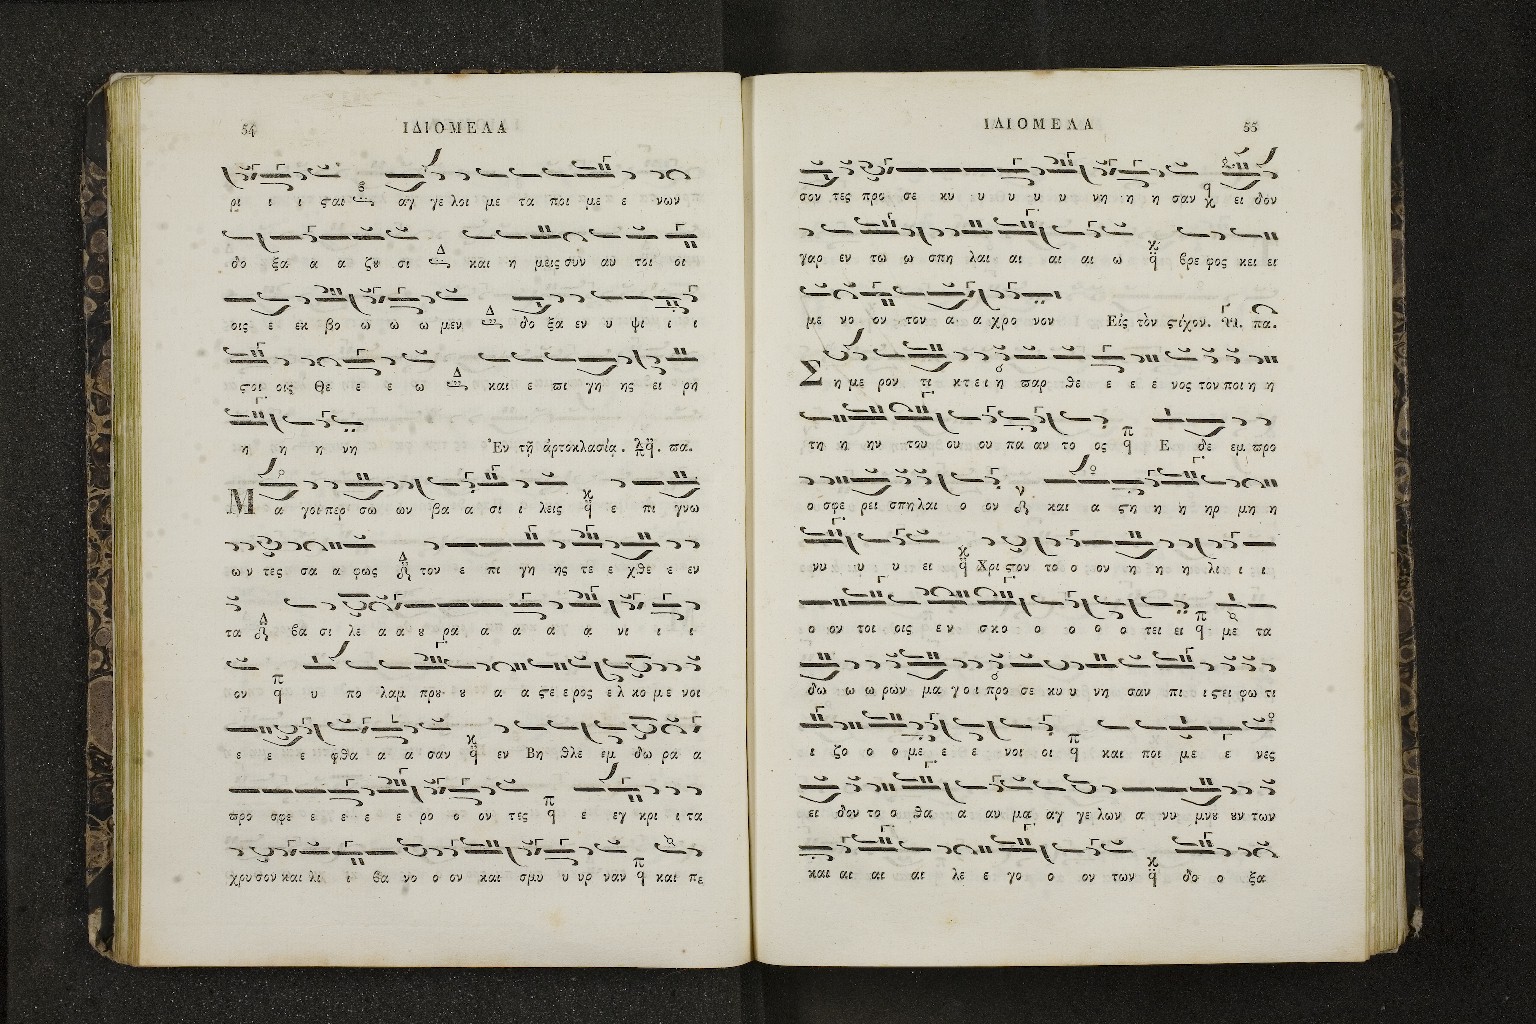 54 ΙΔΙΟΜΕΛΑ
ρι ι ι ςαι αγ γε λοι με τα ποι με ε νων
δο ξα α α ζου σι Δ και η μεις συν αυ τοι οι
οις ε εκ βο ω ω ω μεν Δ δο ξα εν υ ψι ι ι
ςοι οις Θε ε ε ω Δ και ε πι γη ης ει ρη
η η η νη Ἐν τῇ ἀρτοκλασίᾳ. πα.
Μ α γοι περ σω ων βα α σι ι λεις ε πι γνω
ω ν τες σα α φως τον ε πι γη ης τε ε χθε ε εν
τα βα σι λε α α ου ρα α α α α νι ι ι
ον υ πο λαμ πρου ου α α ςε ε ρος ελ κο με νοι
ε ε ε φθα α α σαν εν Βη θλε εμ δω ρα α
προ σφε ε ε ε ε ρο ο ον τες ε εγ κρι ι τα
χρυ σον και λι ι βα νο ο ον και σμυ υ υρ ναν και πε
ΙΔΙΟΜΕΛΑ 55
σον τες προ σε κυ υ υ υ υ νη η η σαν ει δον
γαρ εν τω ω σπη λαι αι αι αι ω βρε φος κει ει
με νο ον τον α α χρο νον Εἰς τὸν ςίχον. πα.
Σ η με ρον τι κτε ι η παρ θε ε ε ε νος τον ποι η η
τη η ην του ου ου πα αν το ος Ε δε εμ προ
ο σφε ρει σπη λαι ο ον και α ςη η η ηρ μη η
νυ υ υ ει Χρι ςον το ο ον η η η λι ι ι
ο ον τοι οις εν σκο ο ο ο ο τει ει με τα
δω ω ω ρων μα γοι προ σε κυ υ νη σαν πι ι ςει φω τι
ι ζο ο ο με ε ε νοι οι και ποι με ε νες
ει δον το ο θα α αυ μα αγ γε λων α νυ μνου ουν των
και αι αι αι λε ε γο ο ον των δο ο ξα